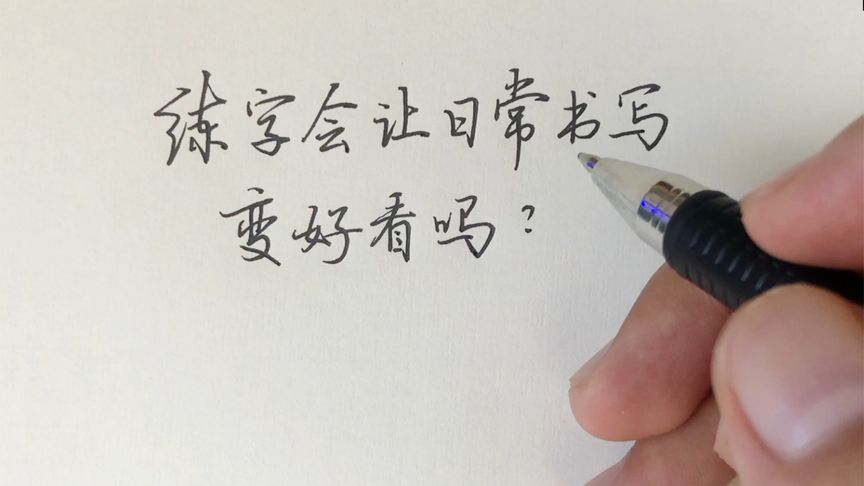 练字会让日常书写
变好看吗?